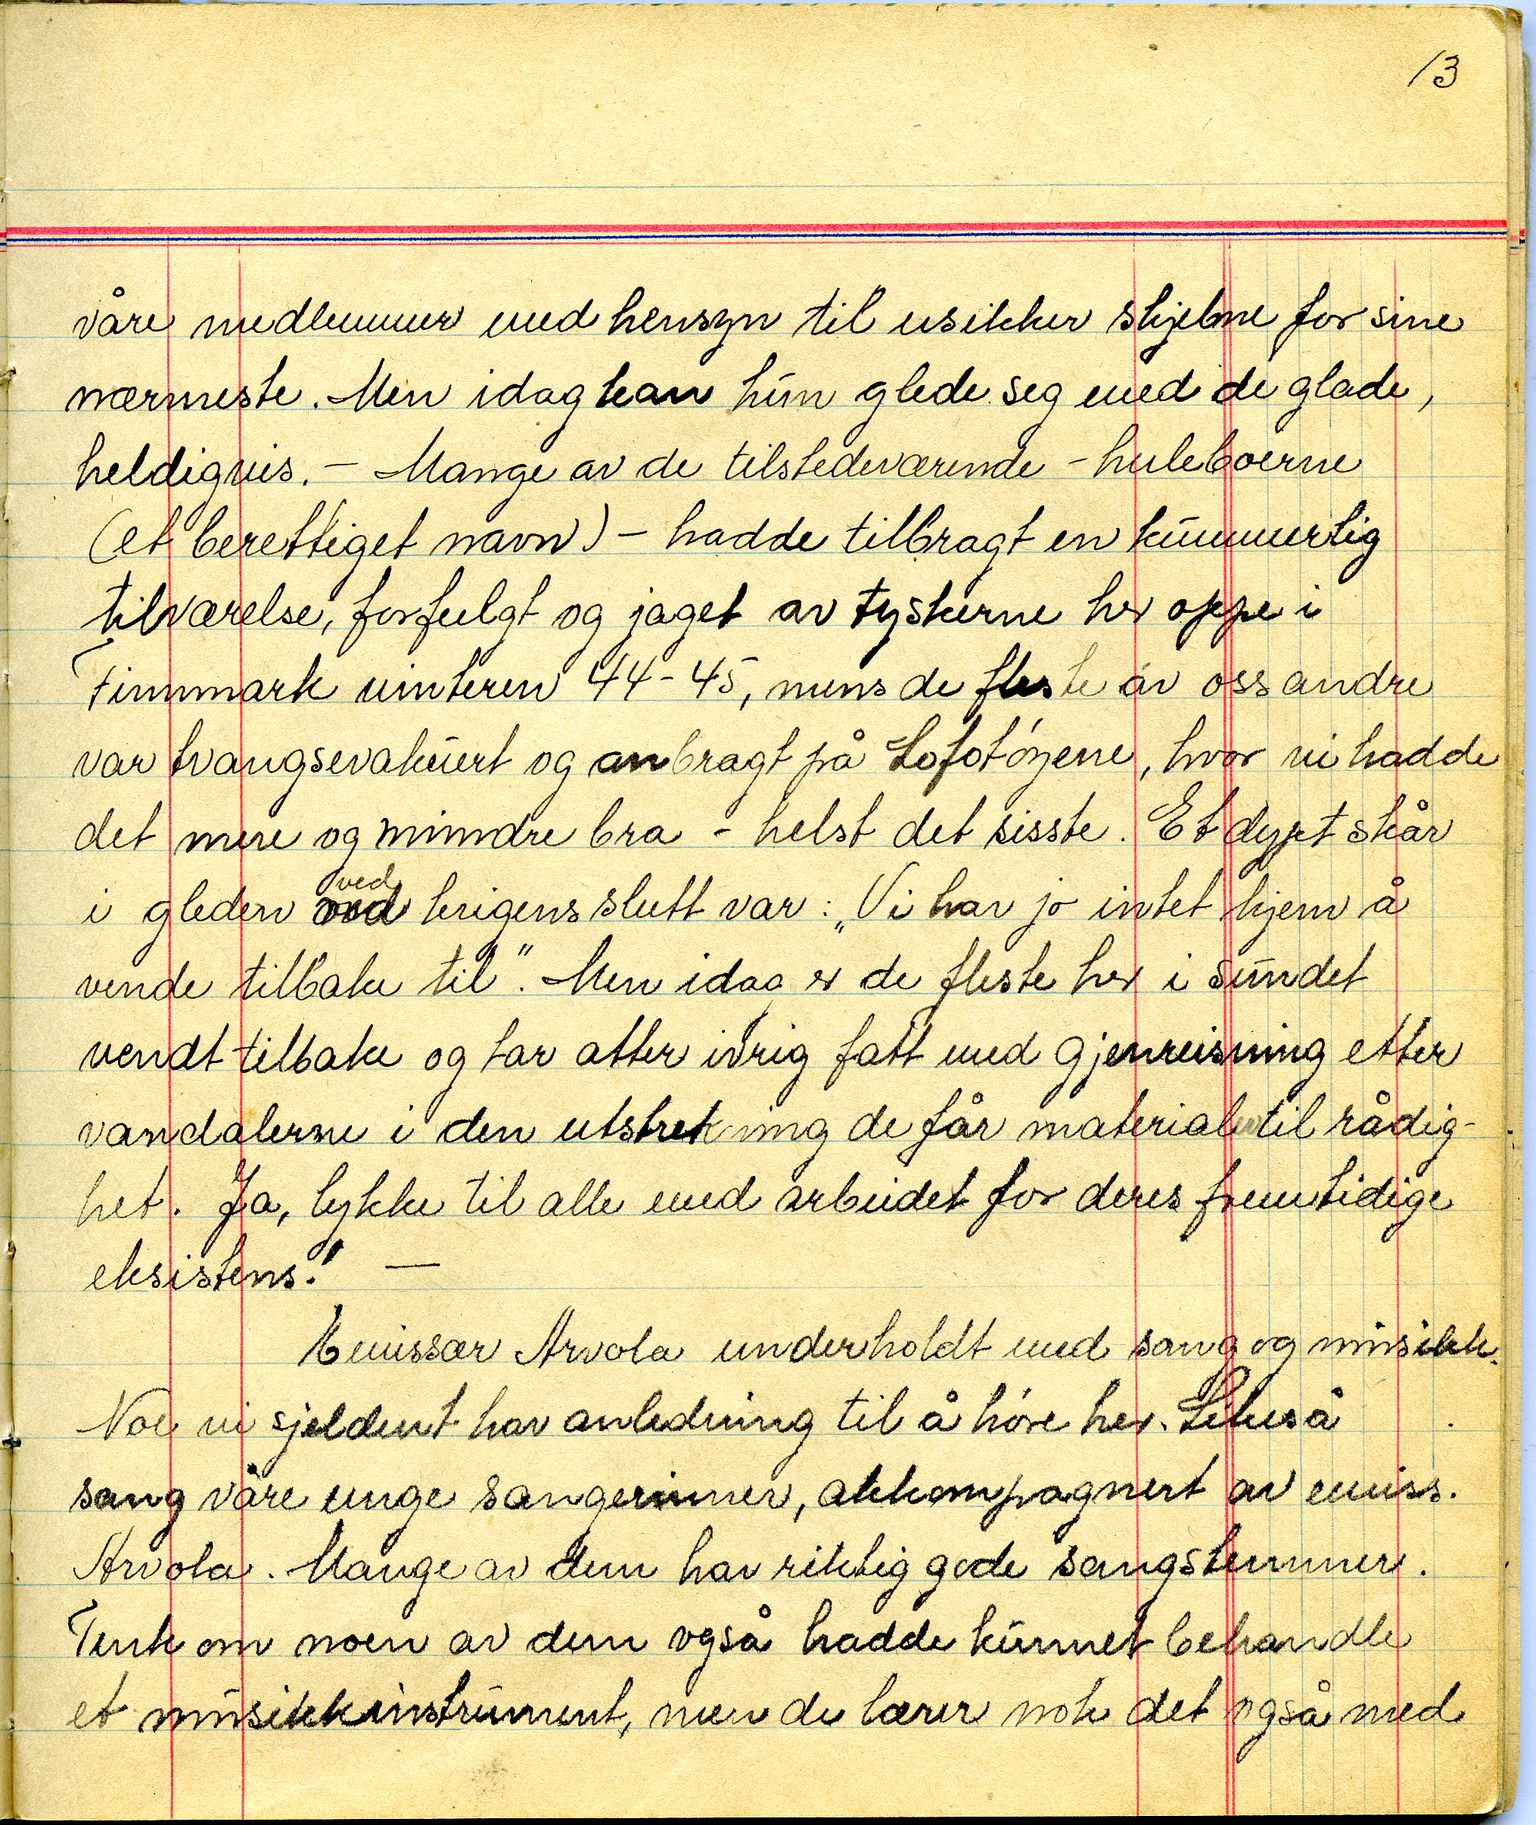 13
våre medlemmer med hensyn til usikker skjebne for sine
nærmeste. Men idag kan hun glede seg med de glade,
heldigvis. – Mange av de tilstedeværende – huleboerne
(et berettiget navn) – hadde tilbragt en kummerlig
tilværelse, forfulgt og jaget av tyskerne her oppe i
Finnmark vinteren 44-45, mens de fleste av oss andre
var tvangsevakuert og anbragt på Lofotøyene, hvor vi hadde
det mere og mindre bra – helst det sisste. Et dypt skår
i gleden ved krigens slutt var: „Vi har jo intet hjem å
vende tilbake til". Men idag er de fleste her i sundet
vendt tilbake og tar atter ivrig fatt med gjenreisning etter
vandalerne i den utstrekning de får materialer til rådig-
het. Ja, lykke til alle med arbeidet for deres fremtidige
eksistens! —
Emissær Arvola underholdt med sang og musikk.
Noe vi sjeldent har anledning til å høre her. Likeså
sang våre unge sangerinner, akkompagnert av emiss.
Arvola. Mange av dem har riktig gode sangstemmer.
Tenk om noen av dem også hadde kunnet behandle
et musikkinstrument, men de lærer nok det også med